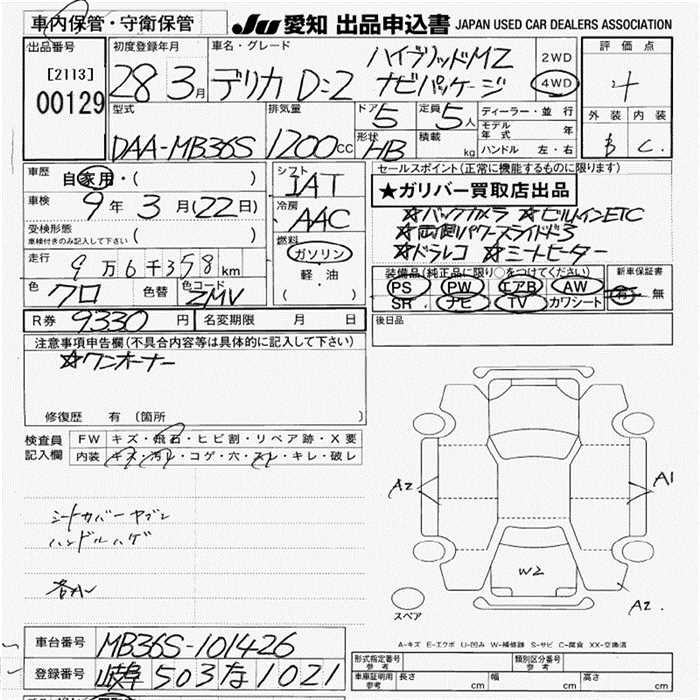 車内保管・守衛保管 JU 愛知 出品申込書 JAPAN USED CAR DEALERS ASSOCIATION
出品番号 初度登録年月 車名・グレード 評価点
[2113] 00129
28 3月 デリカ D:2 ハイブリッドMZ ナビパッケージ 2WD 4WD
型式 排気量 ドア 5 定員 5人 ディーラー・並行 外装 内装
DAA-MB36S 1200cc 形状 HB 積載 kg モデル年式 年 B C
ハンドル 左・右
車歴 自家用・( ) シフト IAT セールスポイント(正常に機能するものに限ります)
車検 9年 3月(22日) 冷房 AAC ★ガリバー買取店出品
受検形態 ( ) ☆バックカメラ ☆ビルトインETC
車検付きのみ記入して下さい 燃料 ☆両側パワースライド3
走行 9万6千358km ガソリン 軽・油 ( ) ☆ドラレコ ☆シートヒーター
色 クロ 色替 色コード ZMV 装備品(純正品に限り○をつけてください) 新車保証書
PS PW エアB AW 有・無
SR ナビ TV カワシート
R券 9330円 名変期限 月 日 後日品
注意事項申告欄(不具合内容等は具体的に記入して下さい)
☆ワンオーナー
修復歴 有 (箇所 )
検査員記入欄 FW キズ・飛石・ヒビ割・リペア跡・X要
内装 キズ・汚レ・コゲ・穴・スレ・キレ・破レ
シートカバーヤブレ
ハンドルハゲ
A2 A1
W2
A2
スペア
A-キズ E-エクボ U-凹み W-補修跡 S-サビ C-腐食 XX-交換済
車台番号 MB36S-101426
登録番号 岐阜 503 な 1021
形式指定番号 参考 類別区分番号 参考
車庫証明用 参考 長さ cm 幅 cm 高さ cm